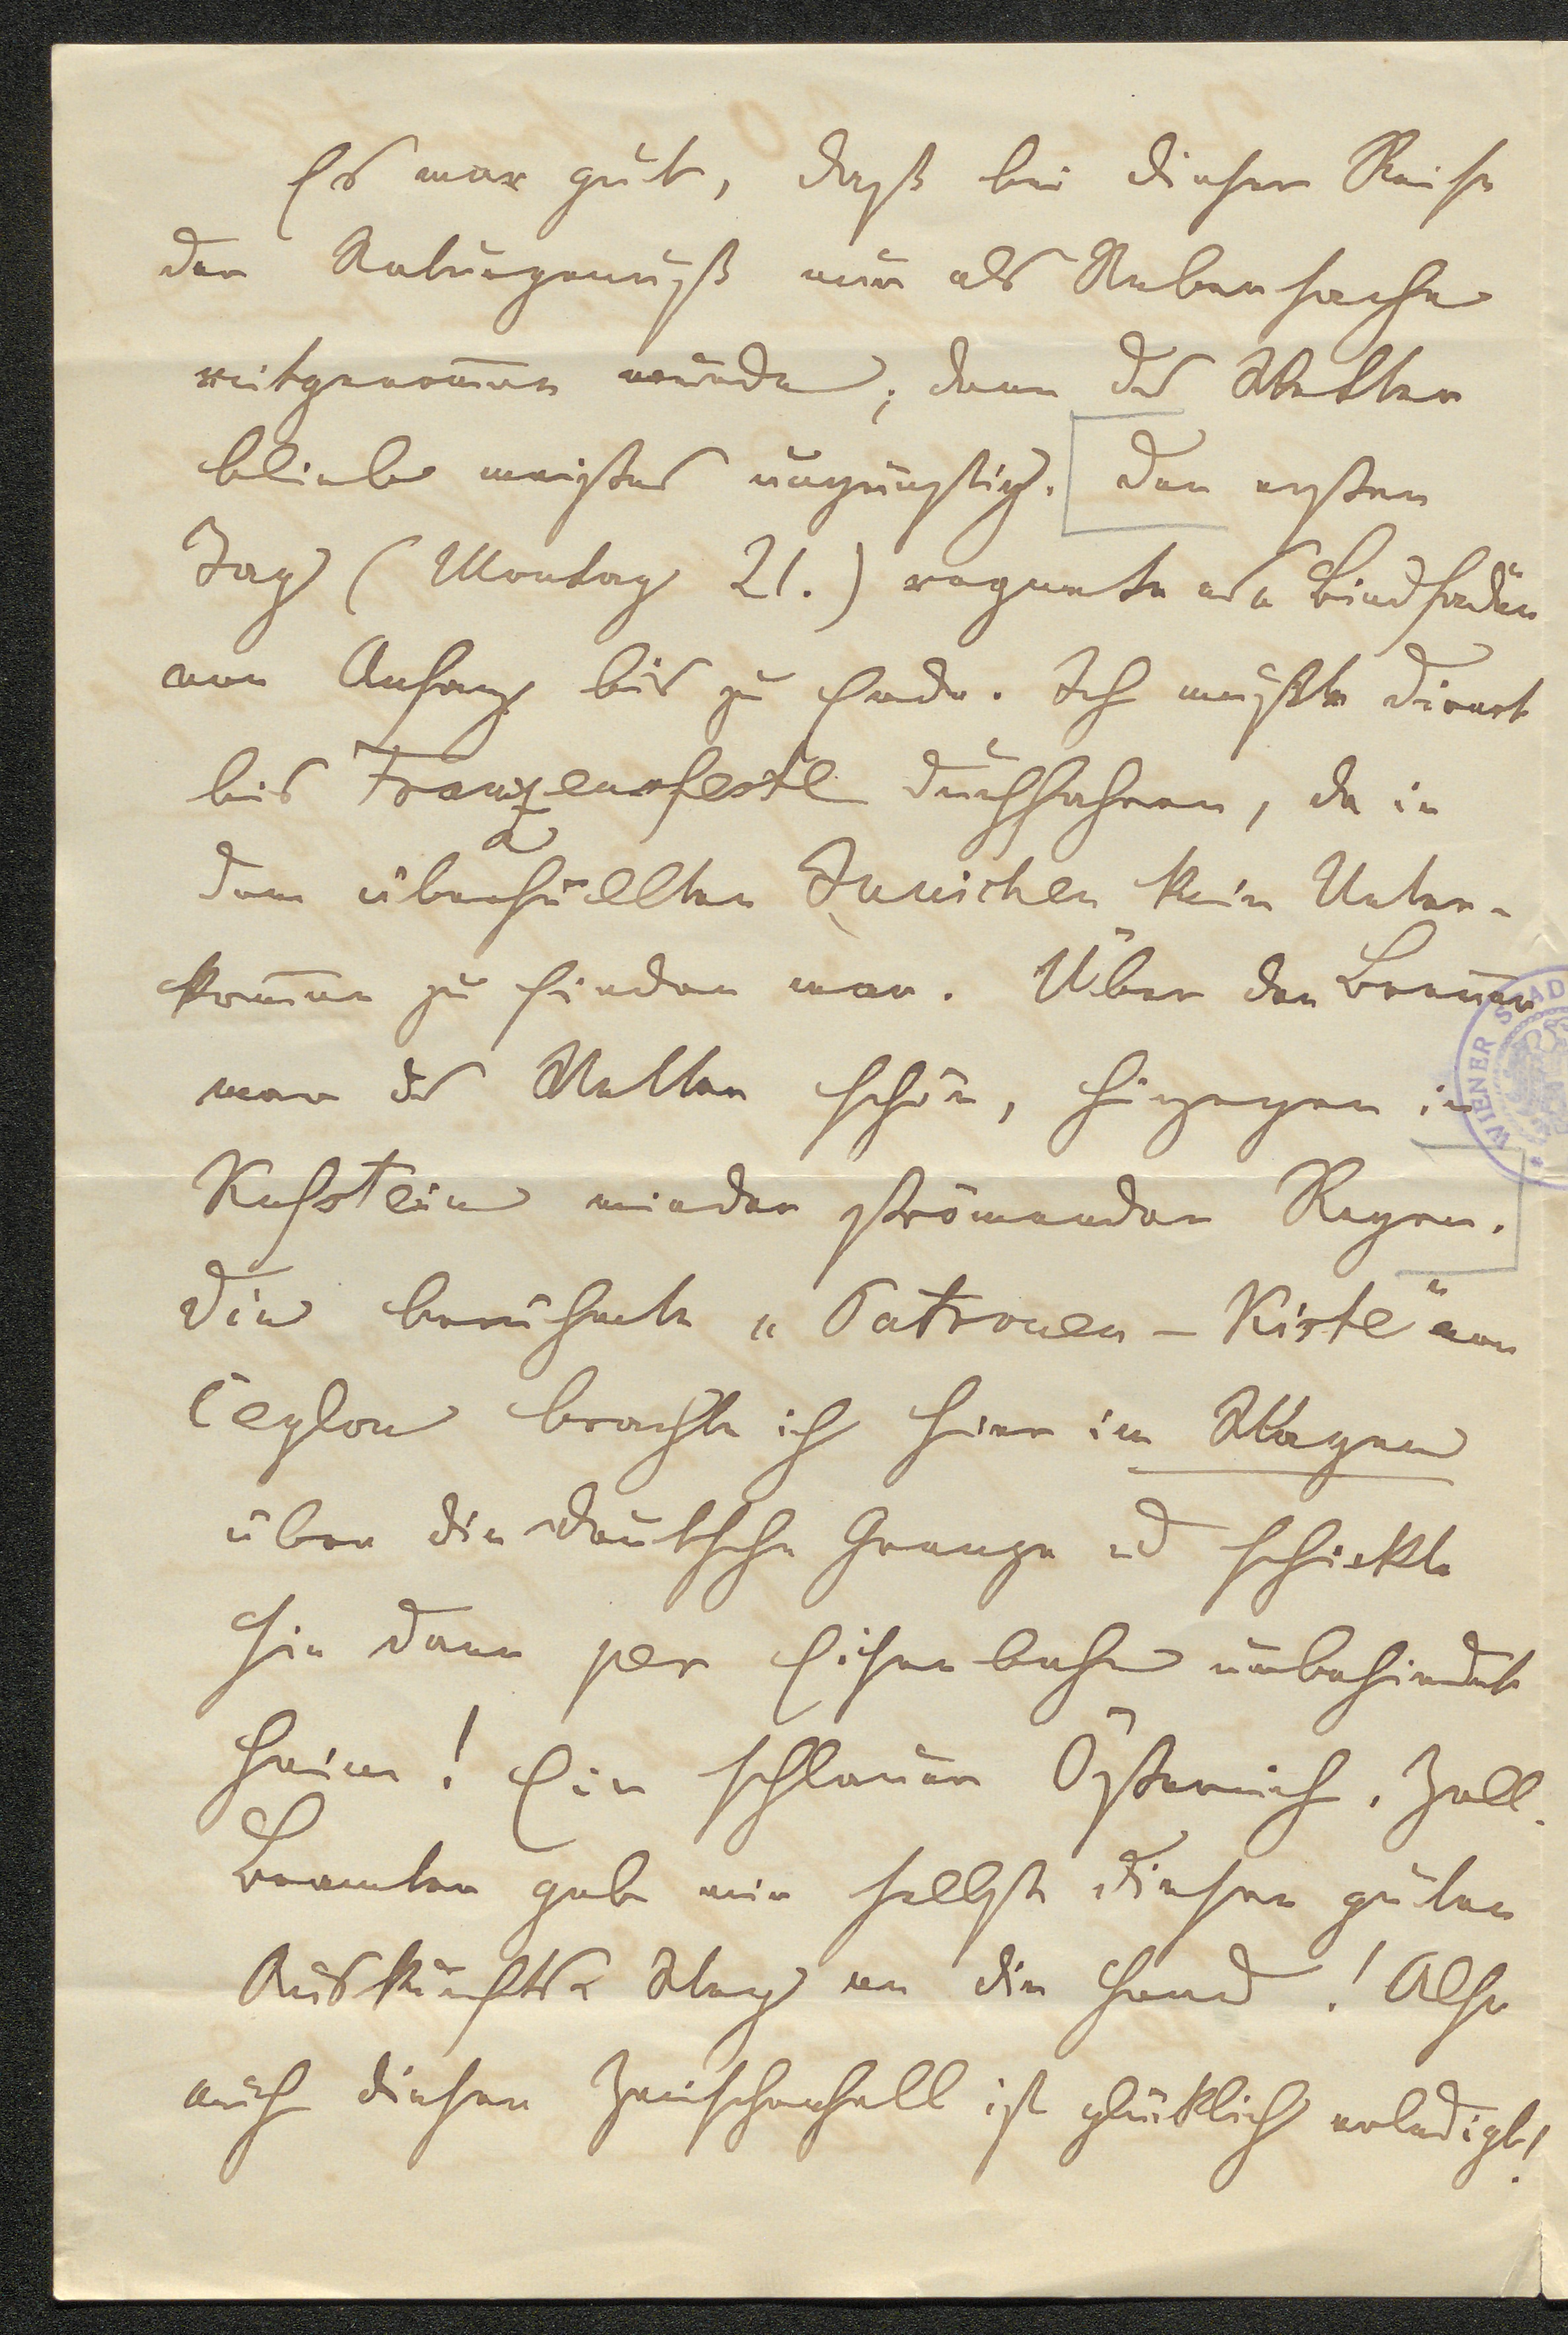 Es war gut, daß bei dieser Reise
der Naturgenuß nur als Nebensache
mitgenom̅en wurde; denn das Wetter
blieb meistens ungünstig. Den ersten
Tag (Montag 21.) regnete es Bindfäden
von Anfang bis zu Ende. Ich mußte direct
bis Franzensfeste durchfahren, da in
dem überfüllten Innichen kein Unter-
kom̅en zu finden war. Über den Bren̅er
war das Wetter schön, hingegen in
Kufstein wieder strömender Regen.
Die berühmte „Patronen-Kiste" von
Ceylon brachte ich hier im Wagen
über die deutsche Grenze und schickte
sie dann per Eisenbahn unbehindert
heim! Ein schlauer Österreich. Zoll-
Beamter gab mir selbst diesen guten
Auskunfts-Weg an die Hand! Also
auch dieser Zwischenfall ist glücklich erledigt!
WIENER STAD